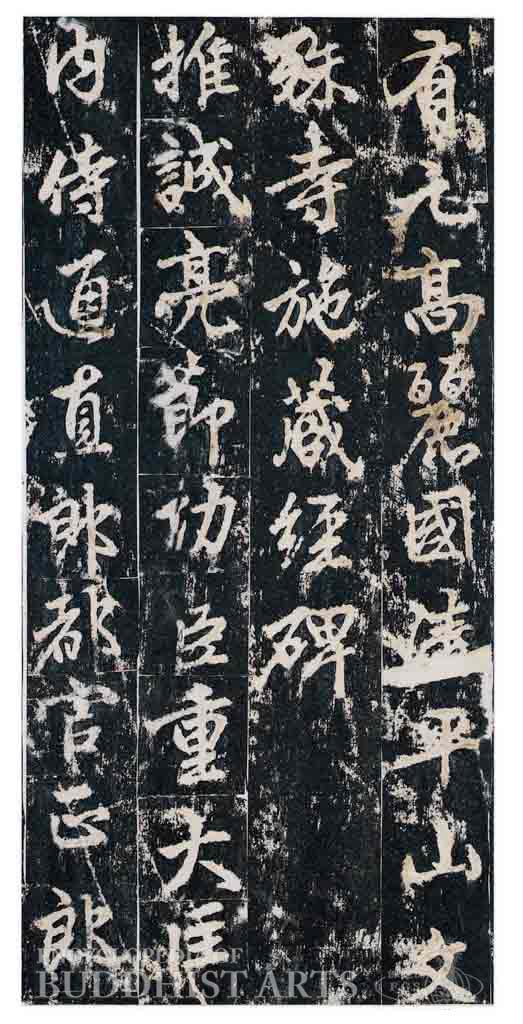 有元高麗國清平山文
殊寺施藏經碑
推誠亮節功臣重大匡
內侍通直郎都官正郎
ENCYCLOPEDIA OF
BUDDHIST ARTS